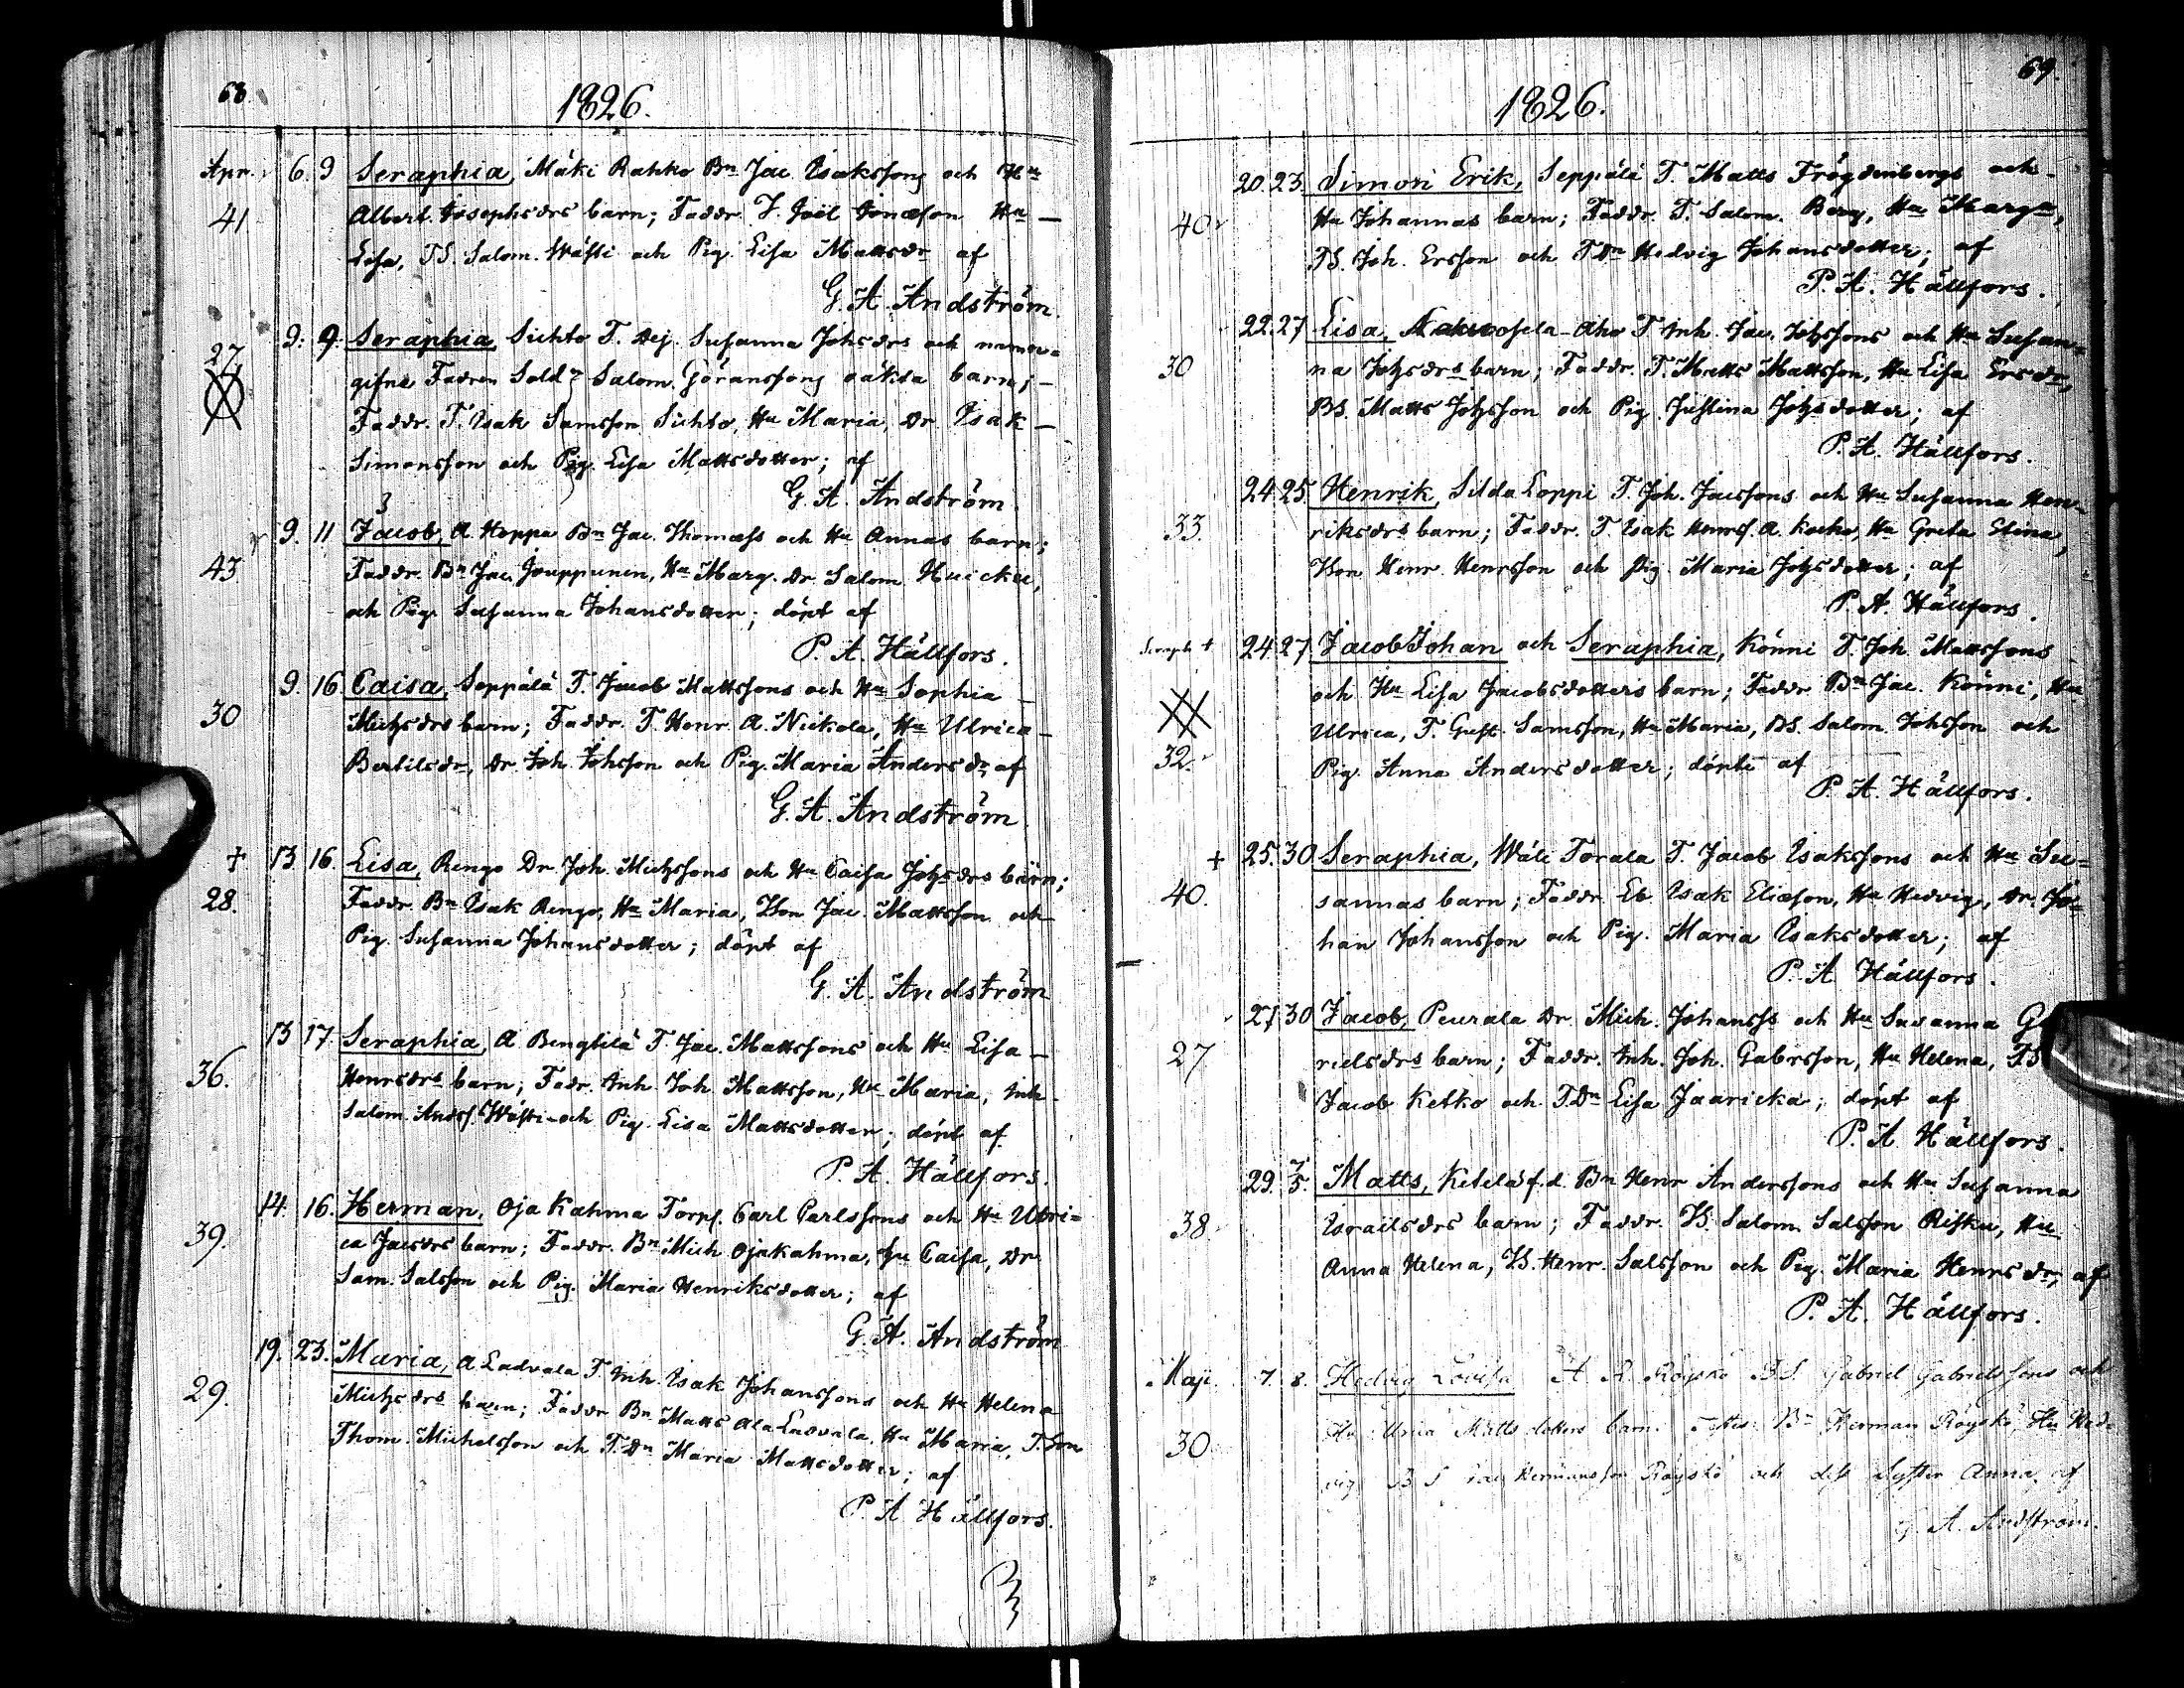 68
1826.
Apr. 6. 9 Seraphia, Mäki Rahko Bn Jac. Isakssons och Hu
41 Albert. Josephsdrs barn; Faddr. T. Joël Jonæson Hu —
Lisa, TS. Salom. Wästi och Pig. Lisa Mattsdr af
G. A. Andström.
9. 9. Seraphia, Sichto T. Dej. Susanna Johsdrs och
27 gifne Fadren Sold. Salom. Göranssons oäkta barn; —
Faddr. T. Isak Samsson Sichto, Hu Maria, Dr. Isak —
Simonsson och Pig. Lisa Mattsdotter; af
G. A. Andström
3
9. 11 Jacob, A. Hoppa Bn Jac. Thomæss och Hu Annas barn;
43 Faddr. Bn Jac. Jouppunen, Hu Marg. Dr. Salom. Huicku,
och Pig. Susanna Johansdotter; döpt af
P. A. Hällfors.
9. 16 Caisa, Seppälä T. Jacob Mattssons och Hu Sophia —
30 Michsdrs barn; Faddr. T. Henr. A. Nickola, Hu Ulrica —
Bertilsdr, Dr. Joh. Johsson och Pig. Maria Andersdr, af
G. A. Andström
+ 13 16. Lisa, Rengo Dr Joh. Michssons och Hu Caisa Johsdrs barn;
28. Faddr. Bn Isak Rengo, Hu Maria, Jac. Mattsson och
Pig. Susanna Johansdotter; döpt af
G. A. Andström
13 17. Seraphia, A. Bengtilä T. Jac. Mattssons och Hu Lisa —
36. Henrsdrs barn; Fadr. Inh. Joh. Mattsson, Hu Maria, Inh.
Salom. Andss. Wästi och Pig. Lisa Mattsdotter; döpt af
P. A. Hällfors.
14. 16. Herman, Oja Kahma Torp. Carl Carlssons och Hu Ulri=
39. ca Jacsdrs barn; Faddr. Bn Mich. Ojakahma, Hu Caisa, Dr
Sam. Salsson och Pig. Maria Henriksdotter; af
G. A. Andström
19. 23. Maria, A. Ladvala T. Inh. Isak Johanssons och Hu Helena
29. Michsdrs barn; Faddr. Bn Matts Ala Ladvala, Hu Maria, T. Son
Thom. Michelsson och T. Dn Maria Mattsdotter; af
P. A. Hällfors.
69.
1826.
20. 23. Simon Erik, Seppälä T. Matts Frögdenbergs och
40 Hu Johannas barn; Faddr. T. Salom. Berg, Hu Margta,
TS. Joh. Ersson och TDn Hedvig Johansdotter; af
P. A. Hällfors.
22. 27 Lisa, Aho T. Inh. Jac. Johssons och Hu Susan=
30 na Johsdrs barn; Faddr. T. Matts Mattsson, Hu Lisa Ersdr,
BS. Matts Johsson och Pig. Justina Johsdotter; af
P. A. Hällfors.
24. 25. Henrik, Silda Loppi T. Joh. Jacssons och Hu Susanna Hen=
33. riksdrs barn; Faddr. T. Isak Henrs. A. Kocko, Hu Greta Stina,
Henr. Henrsson och Pig. Maria Johsdotter; af
P. A. Hällfors.
Seraph + 24. 27. Jacob Johan och Seraphia, Könni T. Joh. Mattssons
och Hu Lisa Jacobsdotters barn; Faddr. Bn Jac. Könni, Hu
Ulrica, T. Gust. Samsson, Hu Maria, BS. Salom. Johsson och
32. Pig. Anna Andersdotter; döpte af
P. A. Hällfors.
+ 25. 30. Seraphia, Wäli Torala T. Jacob Isakssons och Hu Su=
40. sannas barn; Faddr. Eb. Isak Eliæson, Hu Hedvig, Dr. Jo=
han Johansson och Pig. Maria Isaksdotter; af
P. A. Hällfors.
27. 30 Jacob, Peurala Dr. Mich. Johanss och Hu Susanna G
27 rielsdrs barn; Faddr. Inh. Joh. Gabrsson, Hu Helena, TS
Jacob Ketko och T.Dn Lisa Jaaricka; döpt af
P. A. Hällfors.
29. 7/5. Matts, Ketela f.d. Bn Henr Anderssons och Hu Susanna
38. Israëlsdrs barn; Faddr. Salom. Salsson Risku, Hu
Anna Helena, Henr. Salsson och Pig. Maria Henrsdr, af
P. A. Hällfors.
Maji. 7. 8. Hedvig Lovisa A. R. Röyskö B.S. Gabriel Gabrielssons och
30 Hu Mattsdotters barn. Bn Herman Röyskö, Hu Hed=
vig B S Hermansson Röyskö och dess Syster Anna, af
G. A. Andström.